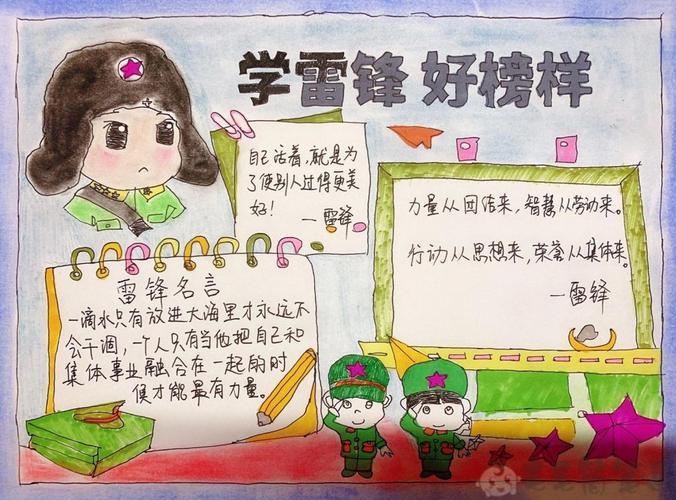 学雷锋 好榜样
自己活着,就是为
了使别人过得更美
好!
—雷锋
力量从团结来,智慧从劳动来。
行动从思想来,荣誉从集体来。
—雷锋
雷锋名言
一滴水只有放进大海里才永远不
会干涸,一个人只有当他把自己和
集体事业融合在一起的时
候才能最有力量。